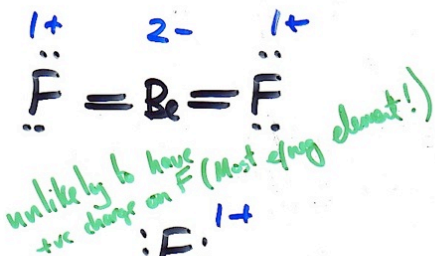 1+ 2- 1+
F = Be = F
unlikely to have
+ve charge on F (Most e/neg element!)
1+
:F·